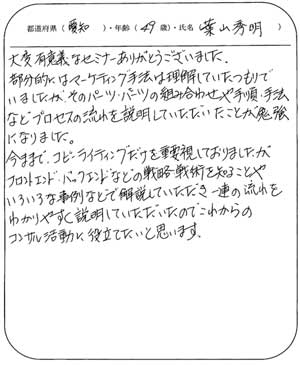 都道府県（愛知）・年齢（49歳）・氏名 葉山秀明
大変有意義なセミナーありがとうございました。
部分的にはマーケティング手法は理解していたつもりで
いましたが、そのパーツ・パーツの組み合わせや手順、手法
などプロセスの流れを説明していただいたことが勉強
になりました。
今まで、コピーライティングだけを重要視しておりましたが
フロントエンド、バックエンドなどの戦略・戦術を知ることや
いろいろな事例などで解説していただき一連の流れを
わかりやすく説明していただいたのでこれからの
コンサル活動に役立てたいと思います。